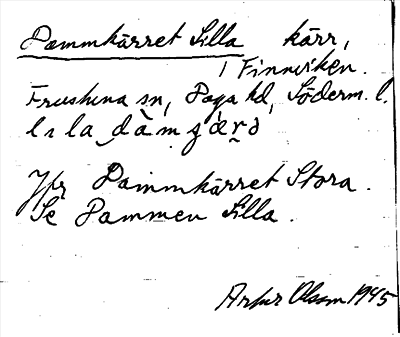 Dammkärret Lilla kärr,
i Finnviken.
Frustuna sn, Daga hd, Söderm. l.
Jfr Dammkärret Stora.
Se Dammen Lilla.
Artur Olsson 1945